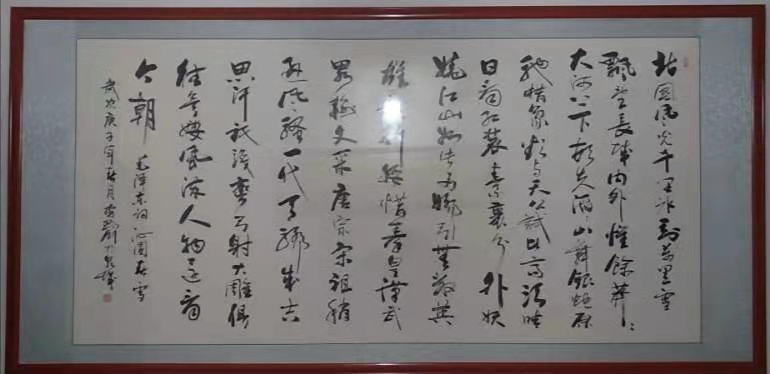 北国風光千里冰封萬里雪
飄望長城内外惟餘莽々
大河上下頓失滔々山舞銀蛇原
馳蜡象欲与天公試比高須晴
日看红装素裹分外妖
娆江山如此多娇引無数英
雄競折腰惜秦皇漢武
略输文采唐宗宋祖稍
逊風騷一代天骄成吉
思汗祗識彎弓射大雕俱
往矣数風流人物还看
今朝 毛泽东词沁園春雪
歲次庚子年秋月